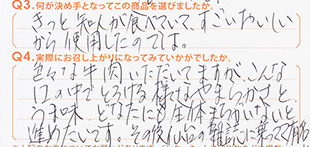 Q3.何が決め手となってこの商品を選びましたか。
きっと知人が食べていて、すごいやいしい
から使用したのでは。
Q4.実際にお召し上がりになってみていかがでしたか。
色々な牛肉いただいてますが、こんな
口の中でとろける様なやわらかさと、
うま味、どなたにも
進めたいです。その後仙台の雑誌に乗ってて